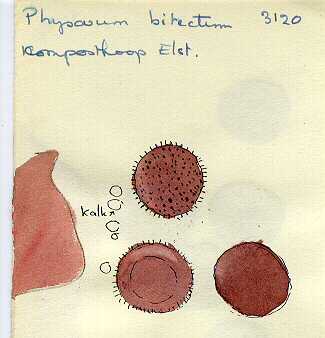 Physarum bitectum 3120
Komposthoop Elst.
kalk